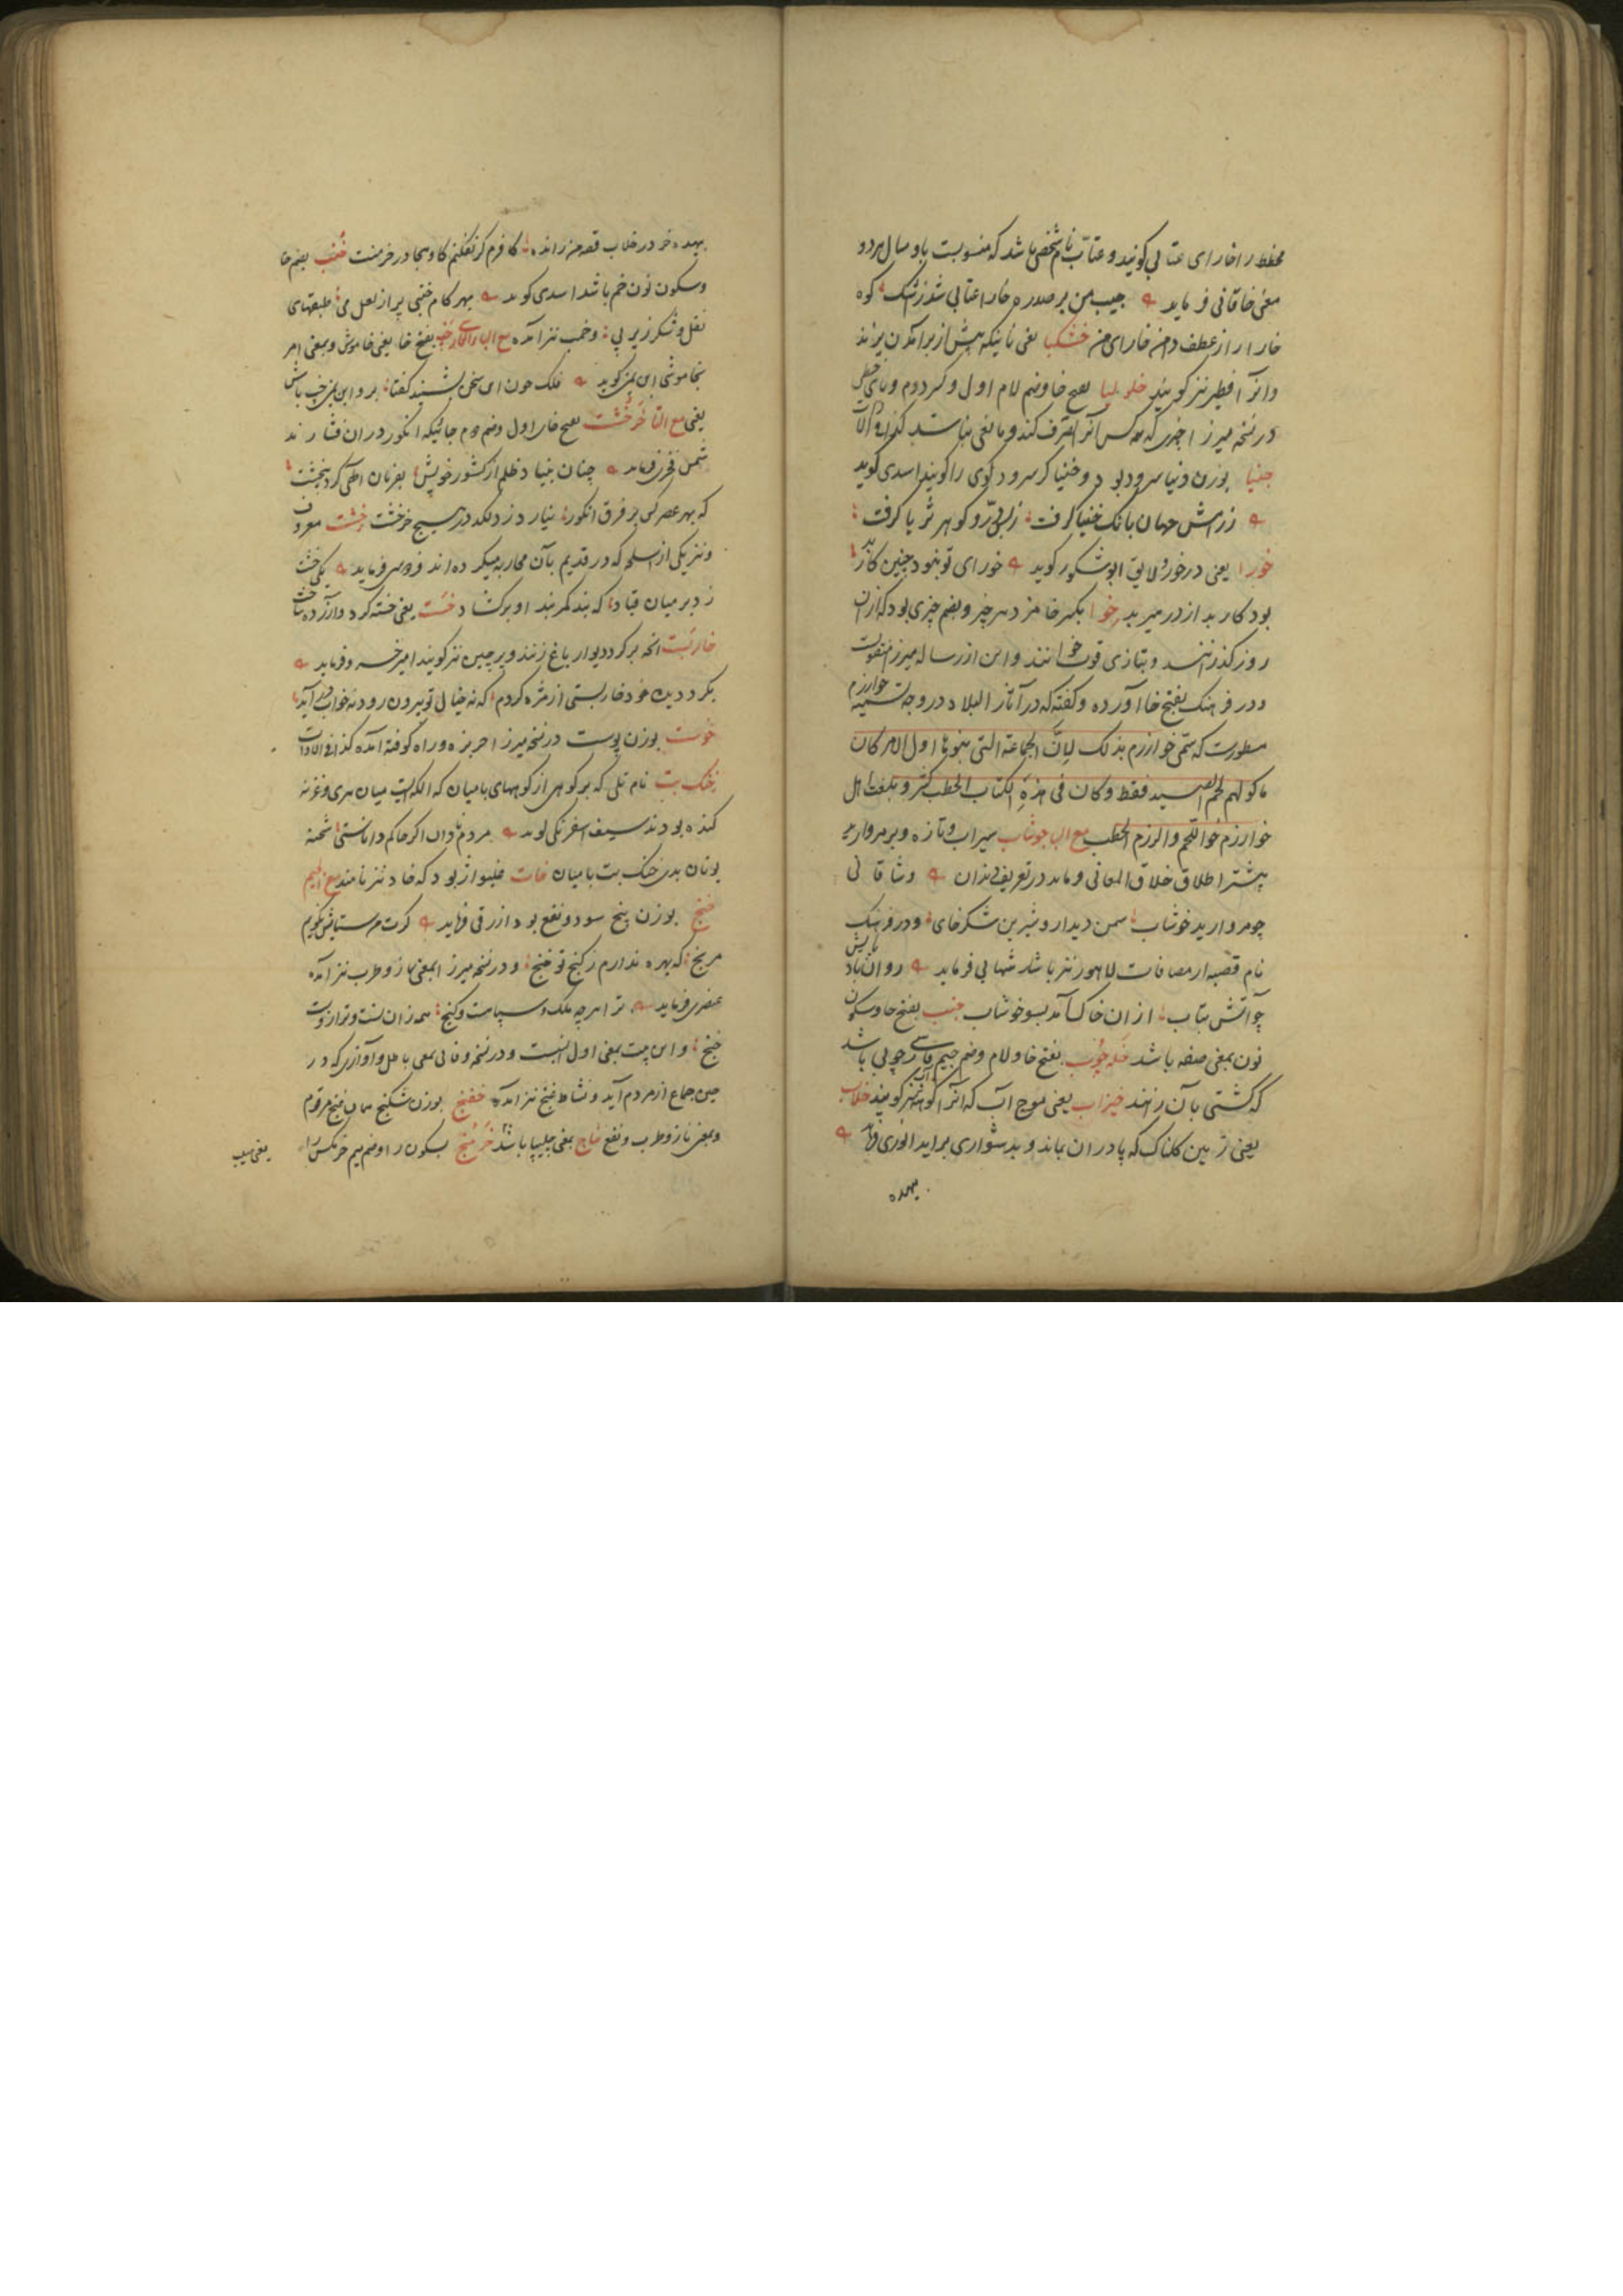 مخطط را خارای عتابی کویند و عتاب نام شخصی باشد که منسوبست باو مثال هر دو
معنی خاقانی فرماید جیب من بر صدره خارا عتابی شد ز اشک کوه
خارا را از عطف دامن خارای من خشکبا یعنی نانیکه پیش از برآمدن پزند
وانرا فطیر نیز کویند بفتح خا وضم لام اول وکسر دوم
در نسخه میرزا چیزی که هر کس آنرا تصرف کند و مانعی نباشد
خنیا بوزن دنیا سرود بود و خنیاکر سرود کوی را کویند اسدی کوید
زرامش جهان بانک خنیا کرفت ز لب پر و کوهر ثریا کرفت
خورا یعنی درخور و لایق ابوشکور کوید خورای تو نبود چنین کار بد
بود کار بد از در هیربد خوا بکسر خا مزد هر چیز و بضم چیزی بود که از آن
روز کذرانند و بتازی قوت خوانند و این از رساله میرزا منقولست
و در فرهنک بفتح خا آورده و کفته که در آثار البلاد در وجه تسمیه خوارزم
مسطورست که سمی خوارزم بذلک لان الجماعة التی بنوها اول الامر کان
ماکولهم لحم الصید فقط وکان فی هذه الحطب کثیر و بلغت اهل
خوارزم خوا اللحم والرزم الحطب مع البا خوشاب سیراب و تازه و بر مروارید
پیشتر اطلاق خلاق المعانی فرماید در تعریف دندان وشاقانی
چو مروارید خوشاب سمن دیدار و شیرین شکرخای و در فرهنک
نام قصبه از مضافات لاهور نیز باشد شهابی فرماید روان باد بایش
چو آتش بتاب از آن خاک آمد بسو خوشاب خنب بفتح خا وسکون
نون بمعنی صفه باشد خله چوب بفتح خا و لام وضم جیم فارسی چوبی باشد
که کشتی بآن رانند خیزاب یعنی موج آب که آنرا کوهه نیز کویند خلاب
یعنی زمین کلناک که پا در آن بماند و بدشواری براید انوری فرماید
بهده
بهده خر در خلاب قصه من رانده کافرم کر نفکنم کاو هجا در خرمنت خنب بضم خا
وسکون نون خم باشد اسدی کوید بهر کام خنبی پر از لعل می طبقهای
نقل و شکر زیر پی وخمب نیز آمده مع البا بفتح خا یعنی خاموش و بمعنی امر
بخاموشی ابن یمین کوید فلک چون این سخن بشنید کفتا برو ابن یمین خب باش
یعنی مع التا خرخشت بفتح خا اول وضم دوم جائیکه انکور در آن فشارند
شمس فخری فرماید چنان بنیاد ظلم از کشور خویش بفرمان الهی کرد
که بهر عصر کس بر فرق انکور نیارد زد لکد در هیچ خرخشت خشت معروف
ونیز یکی از اسلحه که در قدیم بآن محاربه میکرده اند فردوسی فرماید یکی خشت
زد بر میان قباد که بند کمربند او برکشاد خست یعنی خسته کرد و آزرده ساخت
خاربست آنچه بر کرد دیوار باغ زنند و پرچین نیز کویند امیر خسرو فرماید
بکرد دیده خود خاربستی از مژه کردم که نه خیال تو بیرون رود نه خواب درآید
خوست بوزن پوست در نسخه میرزا جزیزه و راه کوفته آمده کذا فی الادات
خنک بت نام بتی که بر کوهی از کوههای بامیان که الکه ایست میان هری و غزنه
کنده بودند سیف اسفرنکی کوید مردم نادان اکر حاکم داناستی شحنه
یونان بدی خنک بت بامیان خات غلیواژ بود که خاد نیز نامند مع الجیم
خنج بوزن پنج سود و نفع بود ازرقی فرماید کرت مر ستایش نکویم
مرنج که بهره ندارم ز کنج تو خنج و در نسخه میرزا بمعنی ناز و طرب نیز آمده
عنصری فرماید ترا هرچه ملک و سپاهست وکنج همه زان تست و ترا زوست
خنج و این بیت بمعنی اول انسبست و در نسخه وفائی بمعنی باطل و آوازی که در
حین جماع از مردم آید و نشاط غنج نیز آمده خفنج بوزن شکنج همان خنج مرقوم
وبمعنی ناز و طرب و نفع خاج بمعنی چلیپا باشد خرمنج بسکون را وضم میم خرمکس را
یعنی سیب